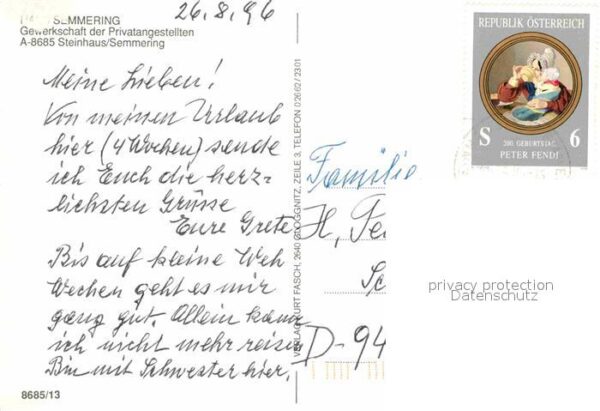 26.8.96
SEMMERING
Gewerkschaft der Privatangestellten
A-8685 Steinhaus/Semmering
Meine Lieben!
Von meinen Urlaub
hier (4 Wochen) sende
ich Euch die herz-
lichsten Grüsse
Eure Grete
Bis auf kleine Weh
Wechen geht es mir
ganz gut. Allein kann
ich nicht mehr reisen
Bin mit Schwester hier.
8685/13
VERLAG KURT FASCH, 2640 GLOGGNITZ, ZEILE 3, TELEFON 02662/2301
REPUBLIK ÖSTERREICH
200. GEBURTSTAG
S 6
PETER FENDI
Familie
H, Fe
Sc
D-94
privacy protection
Datenschutz